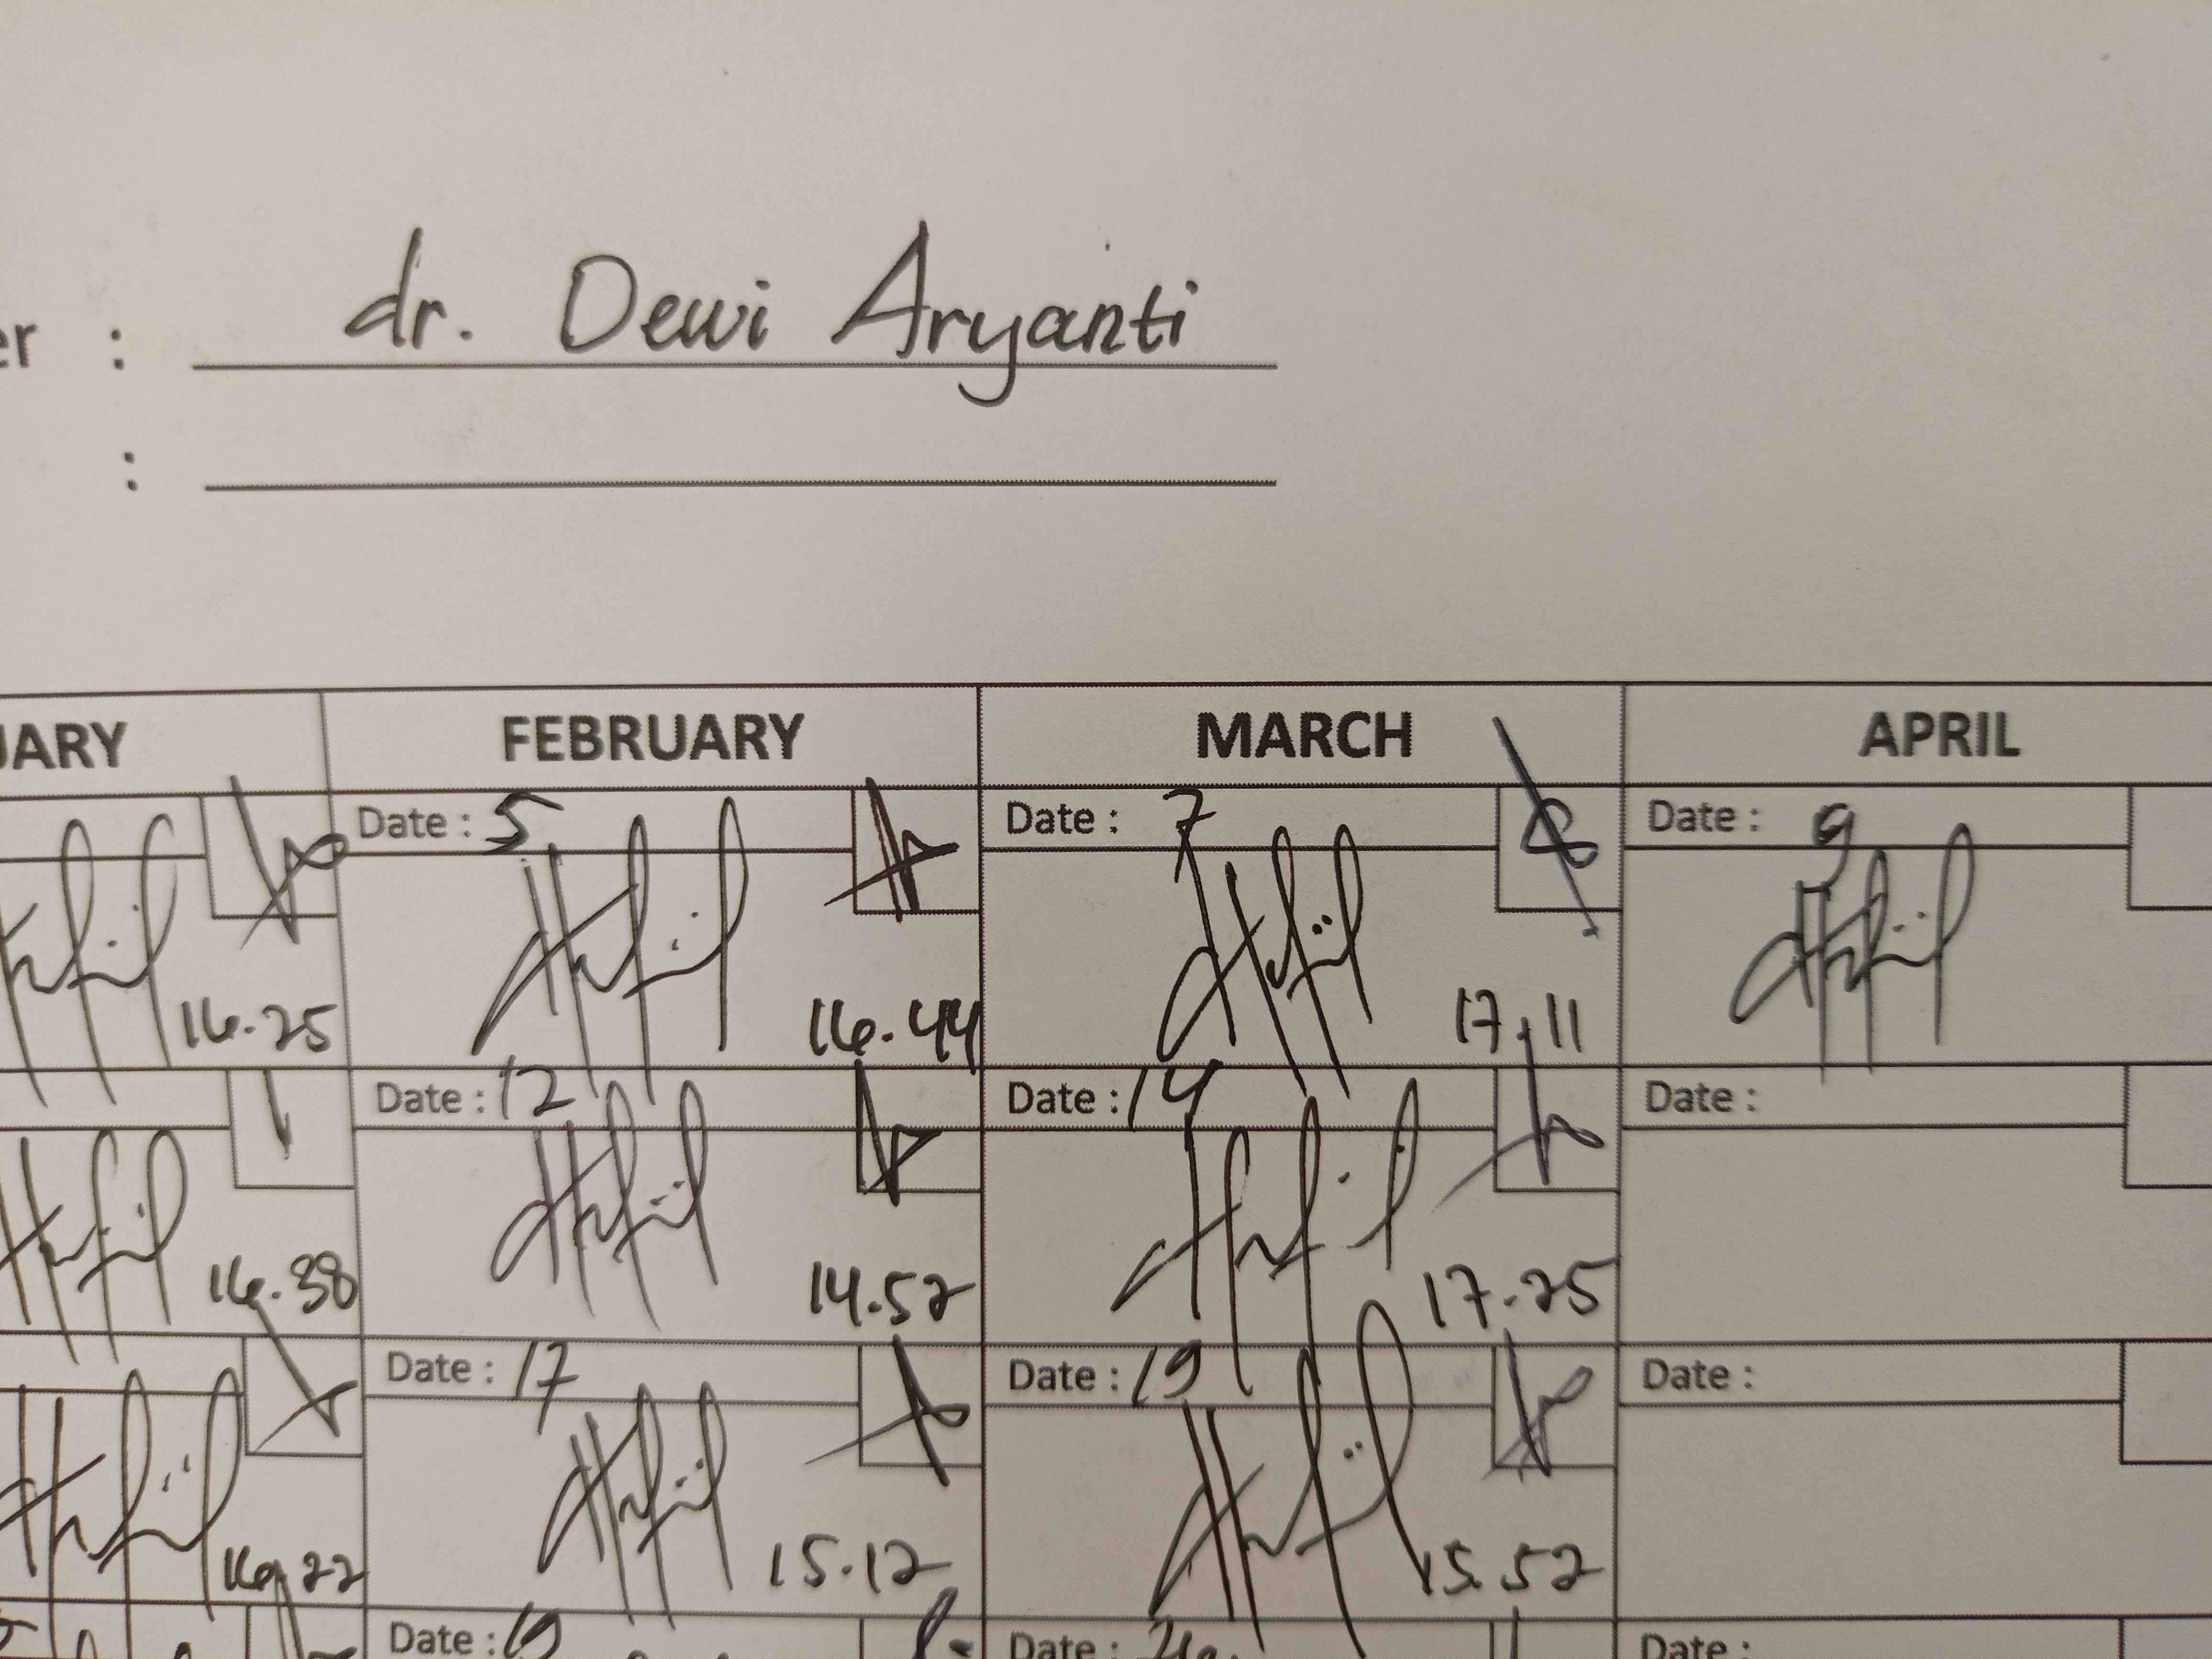 er : dr. Dewi Aryanti
:
UARY FEBRUARY MARCH APRIL
Date : 5 Date : 7 Date : 9
16.25 16.44 17.11
Date : 12 Date : 14 Date :
16.38 14.52 17.25
Date : 17 Date : 19 Date :
16.22 15.12 15.52
Date : 19 Date : Date :